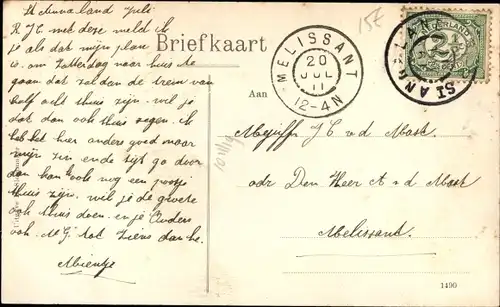 St Annaland Juli
N. J C met deze meld ik
je als dat mijn plan
is om Zatterdag naar huis te
gaan dat zal dan de trein van
half acht thuis zijn. wil je
dat dan ook thuis zegen. ik
heb het hier anders goed maar
mijn zin en de tijd go door
dan kan ook nog een postje
thuis zijn. wil je de groete
ook thuis doen en je Ouders
ook. N J tot Ziens dan he.
Mientje
Briefkaart
Aan
MELISSANT
20
JUL
11
12-4N
NEDERLAND
ST ANNALAND
15E
Mejuffr J C v d Mast
adr Den Heer A v d Mast
Melissant.
1490